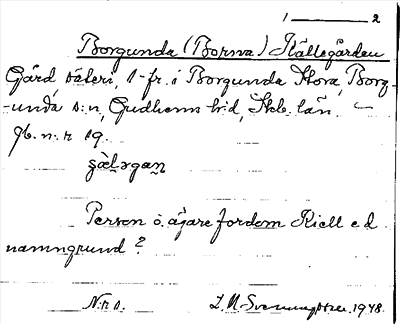 1 — 2
Borgunda (Borna) Källegården
Gård, säteri, 1 fr. i Borgunda Stora, Borg-
-unda s:n, Gudhems h:d, Skb. län.
Jb. n:r 19.
Person o. ägare fordom Kiell e.d
namngrund?
N:r 1. 1948.